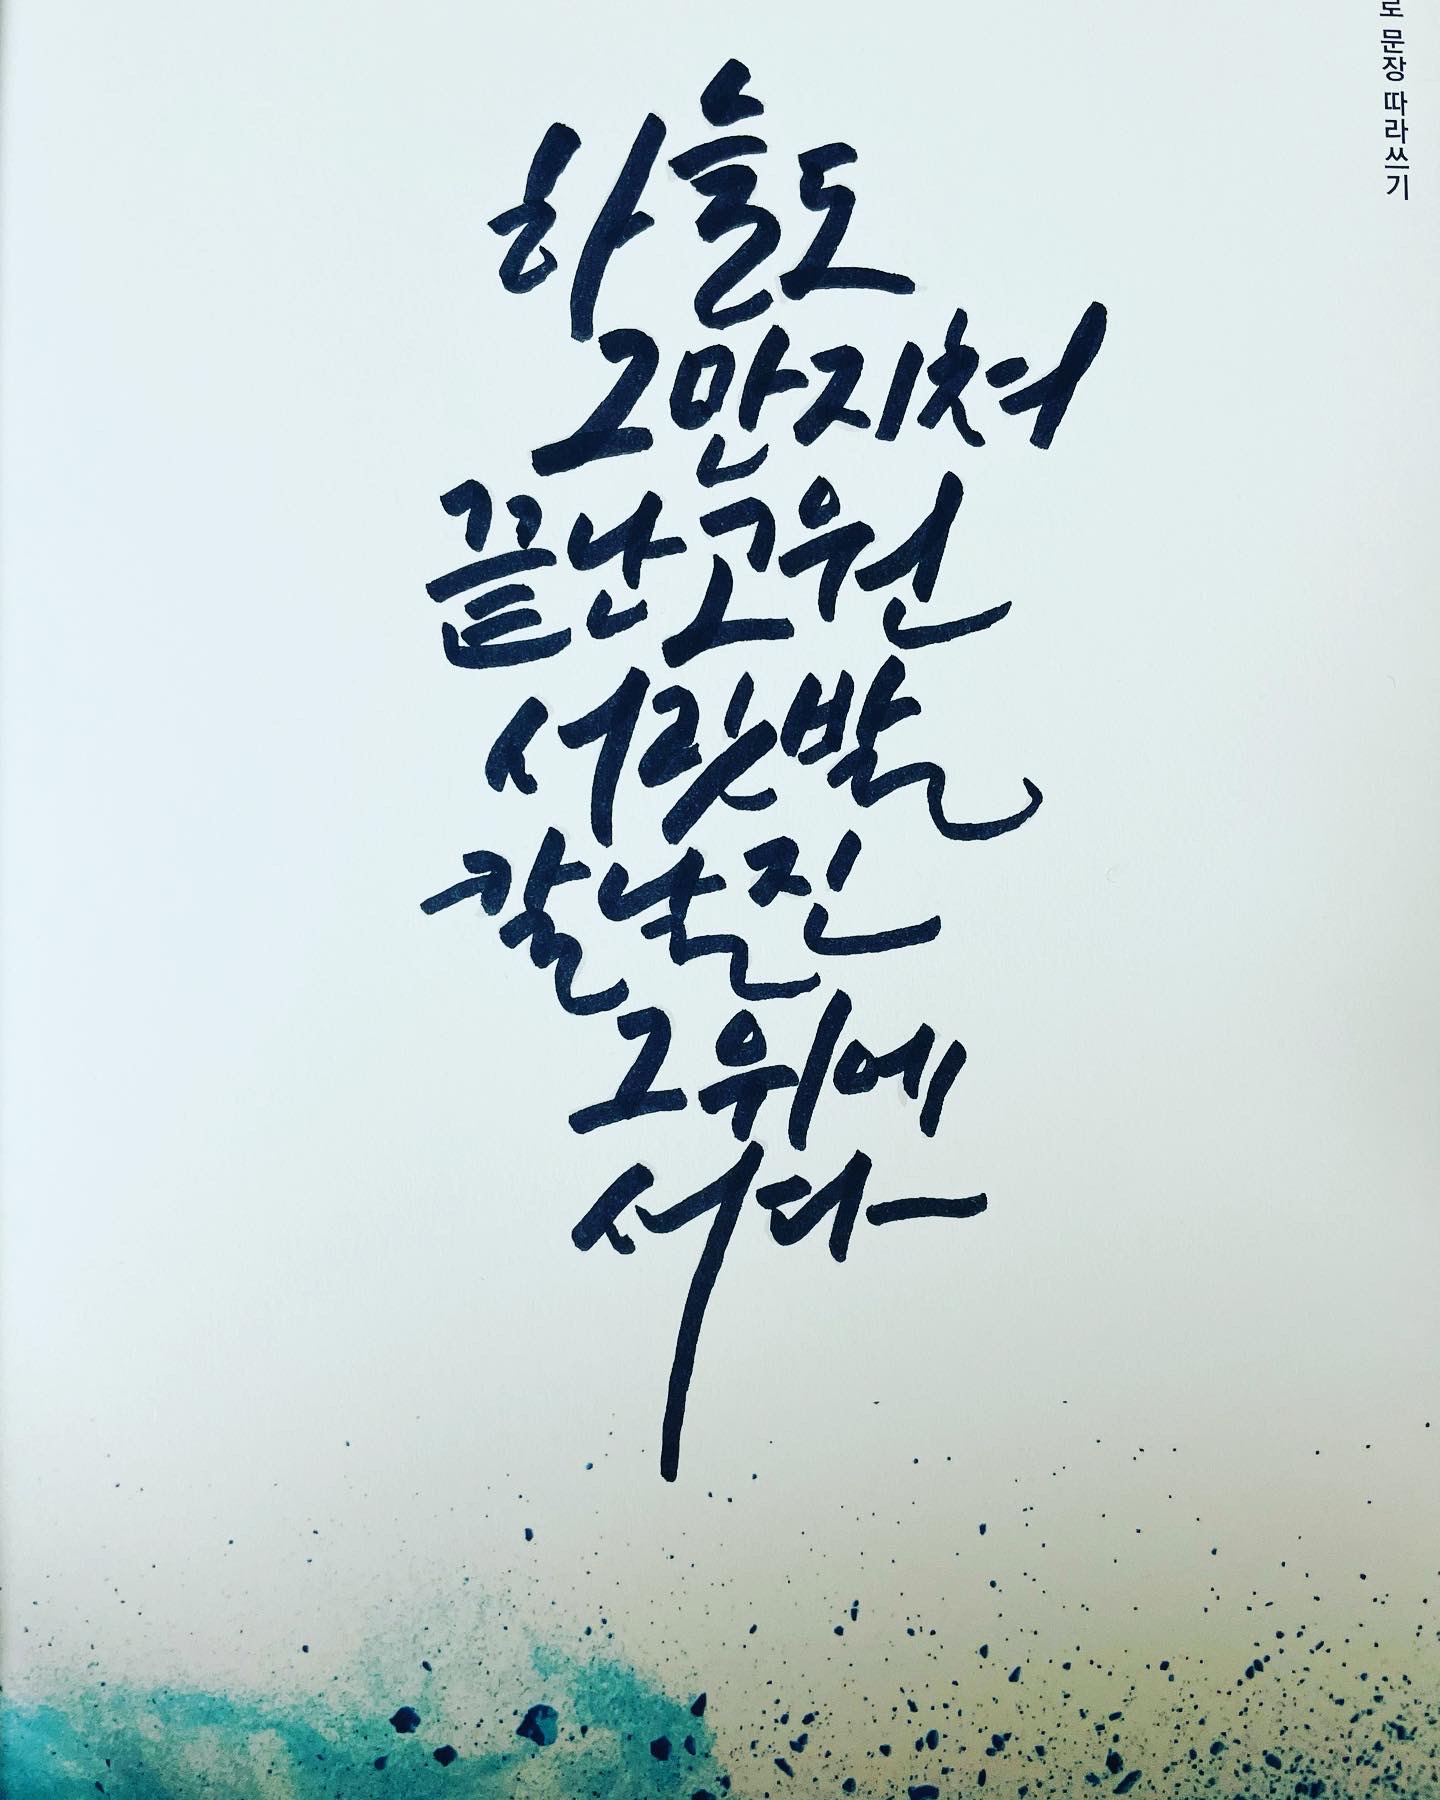 로 문장 따라쓰기
하늘도
그만 지쳐
끝난 고원
서릿발
칼날진
그 위에
서다